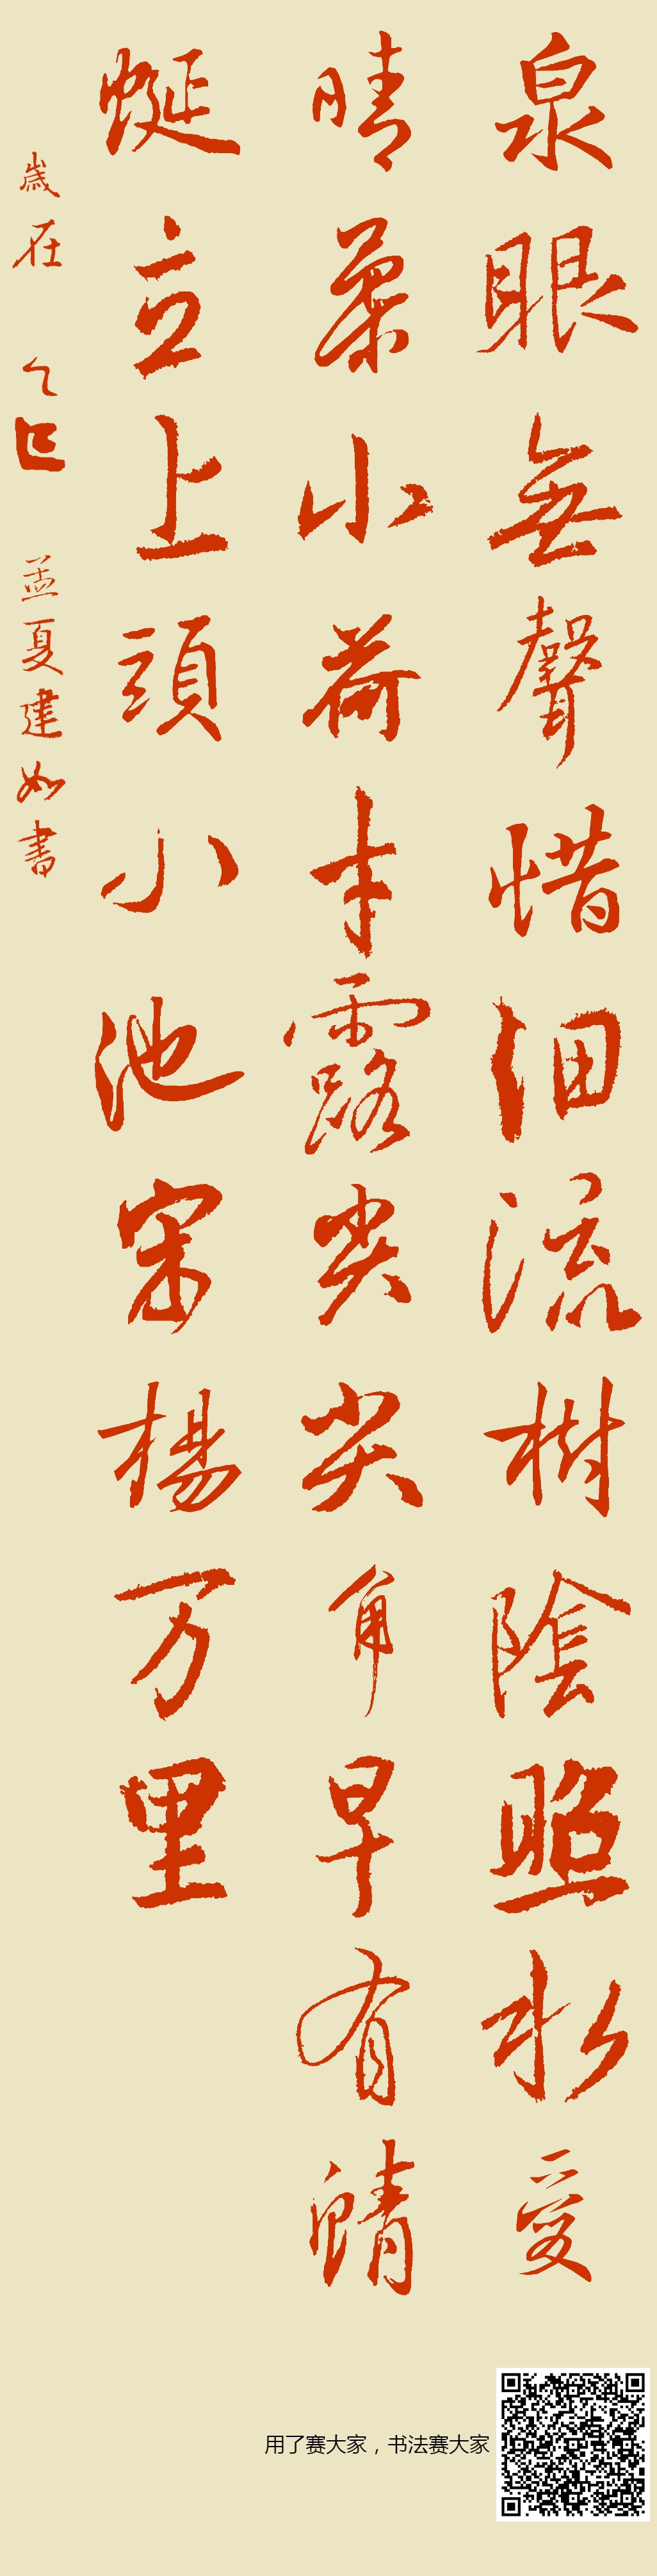 泉眼無聲惜细流樹陰照水愛
晴柔小荷才露尖尖角早有蜻
蜓立上頭小池宋楊万里
歲在乙巳孟夏建如書
用了赛大家，书法赛大家